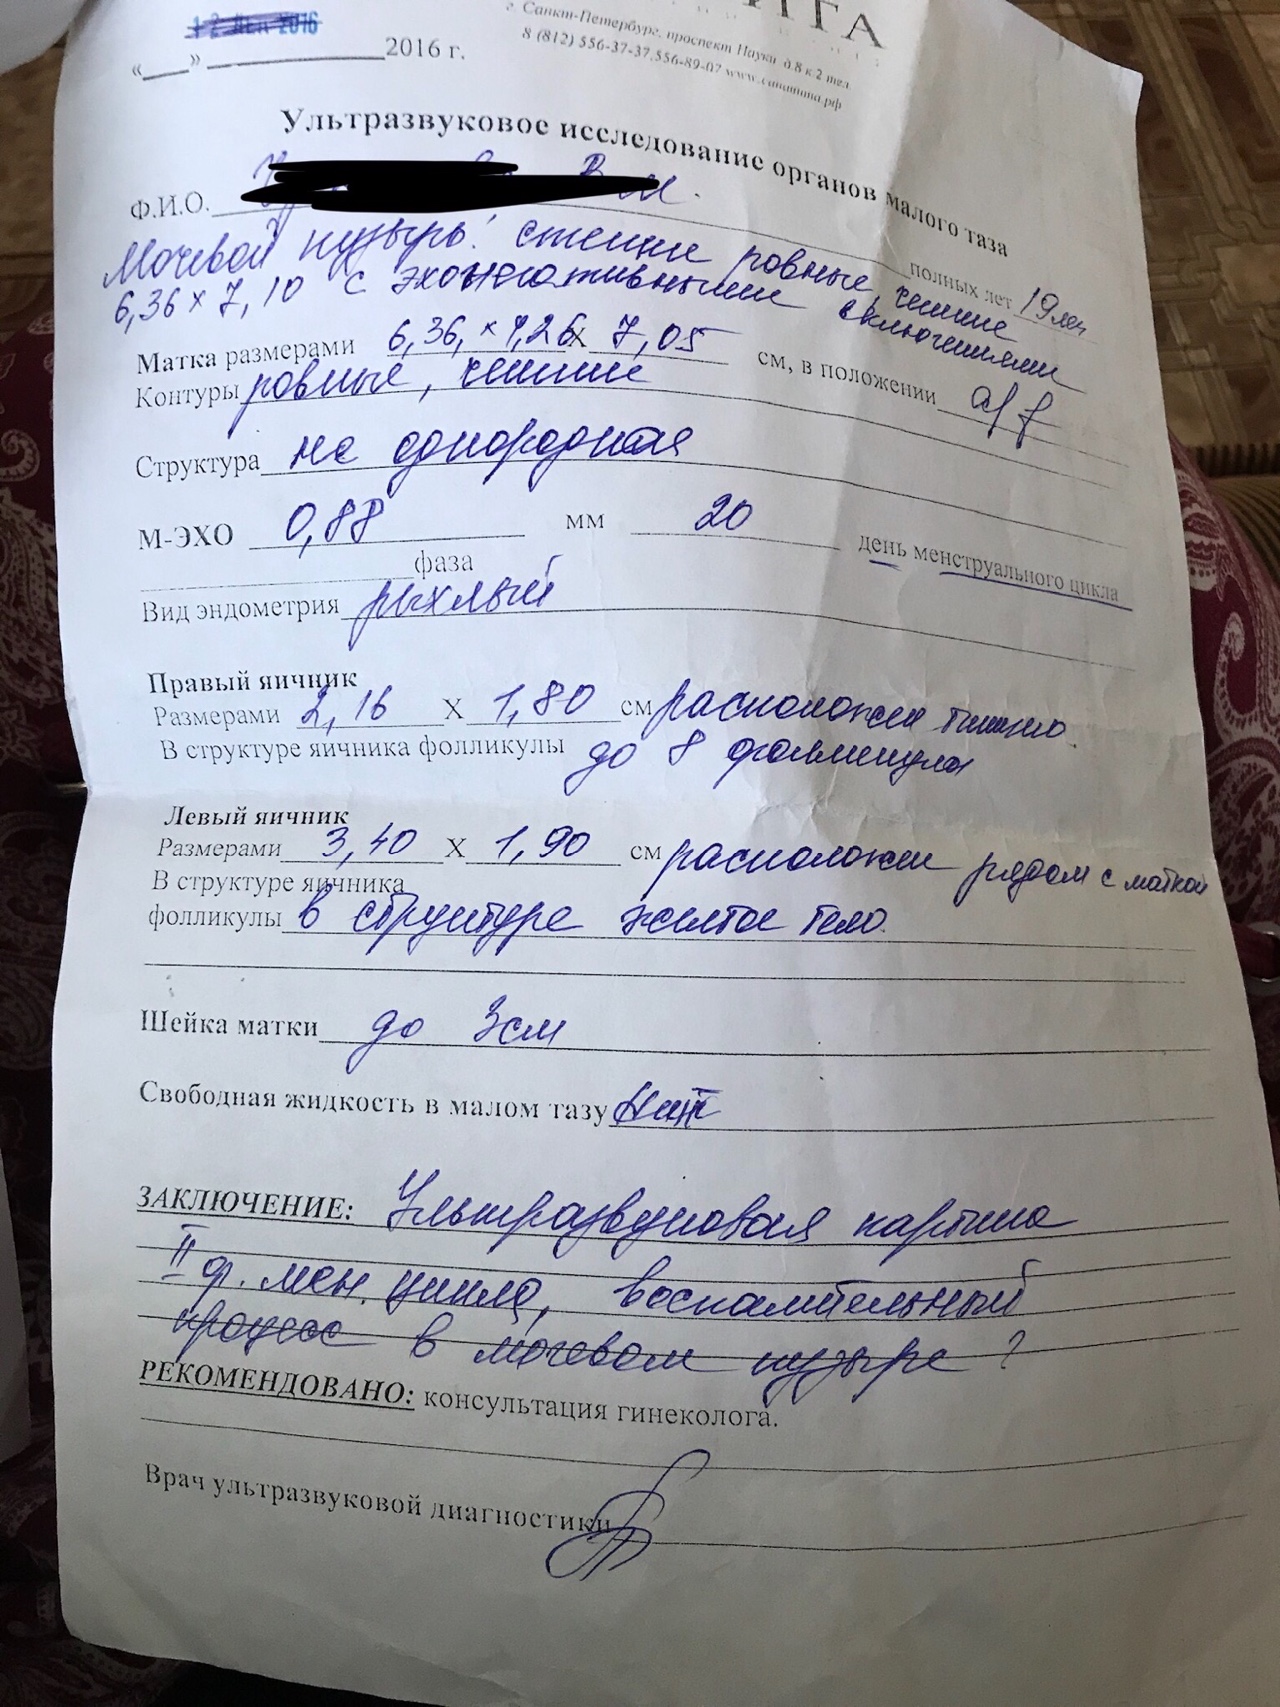 12 ДЕК 2016
«___» ____________ 2016 г.
г. Санкт-Петербург, проспект Науки д.8 к.2 тел.
8 (812) 556-37-37,556-89-07 www.санатина.рф
Ультразвуковое исследование органов малого таза
Ф.И.О.
полных лет 19 лет
Мочевой пузырь: стенки ровные, четкие
6,36 х 7,10 с эхонегативными включениями
Матка размерами 6,36, х 4,26 х 7,05 см, в положении a/f
Контуры ровные, четкие
Структура не однородная
М-ЭХО 0,88 мм 20 день менструального цикла
фаза
Вид эндометрия рыхлый
Правый яичник
Размерами 2,16 Х 1,80 см расположен типично.
В структуре яичника фолликулы до 8 фолликула
Левый яичник
Размерами 3,40 Х 1,90 см расположен рядом с маткой
В структуре яичника
фолликулы в структуре желтое тело.
Шейка матки до 3см
Свободная жидкость в малом тазу Нет
ЗАКЛЮЧЕНИЕ: Ультразвуковая картина
II ф. мен. цикла, воспалительный
процесс в мочевом пузыре ?
РЕКОМЕНДОВАНО: консультация гинеколога.
Врач ультразвуковой диагностики